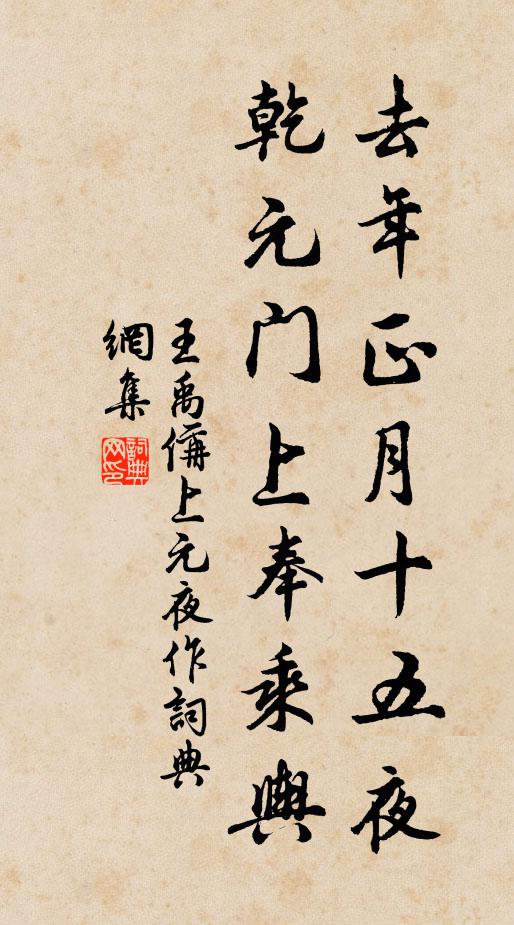 去年正月十五夜
乾元门上奉乘輿
王禹偁上元夜作詞典
網集
詞典网印